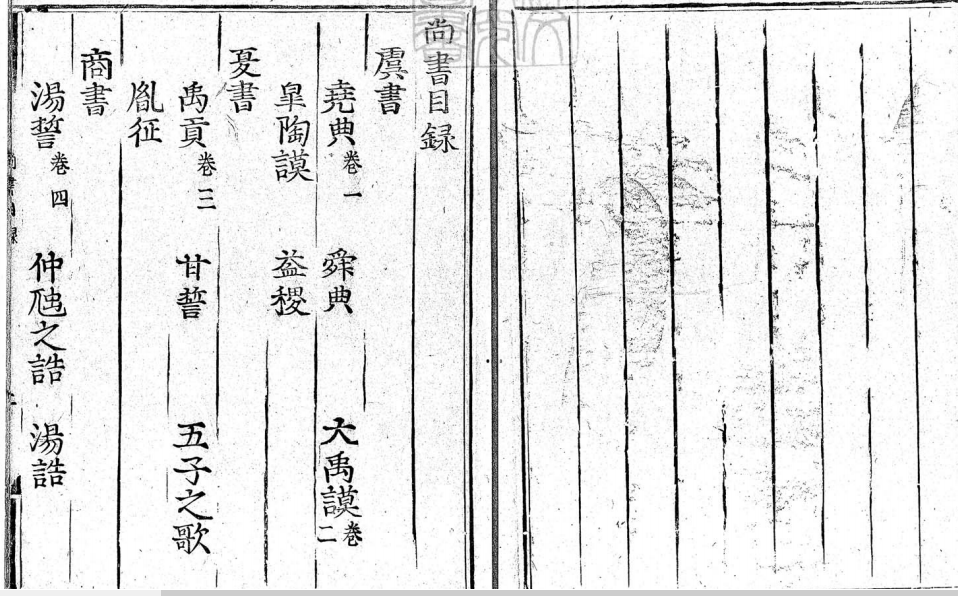 尚書目録
虞書
堯典卷一 舜典 大禹謨卷二
皐陶謨 益稷
夏書
禹貢卷三 甘誓 五子之歌
胤征
商書
湯誓卷四 仲虺之誥 湯誥